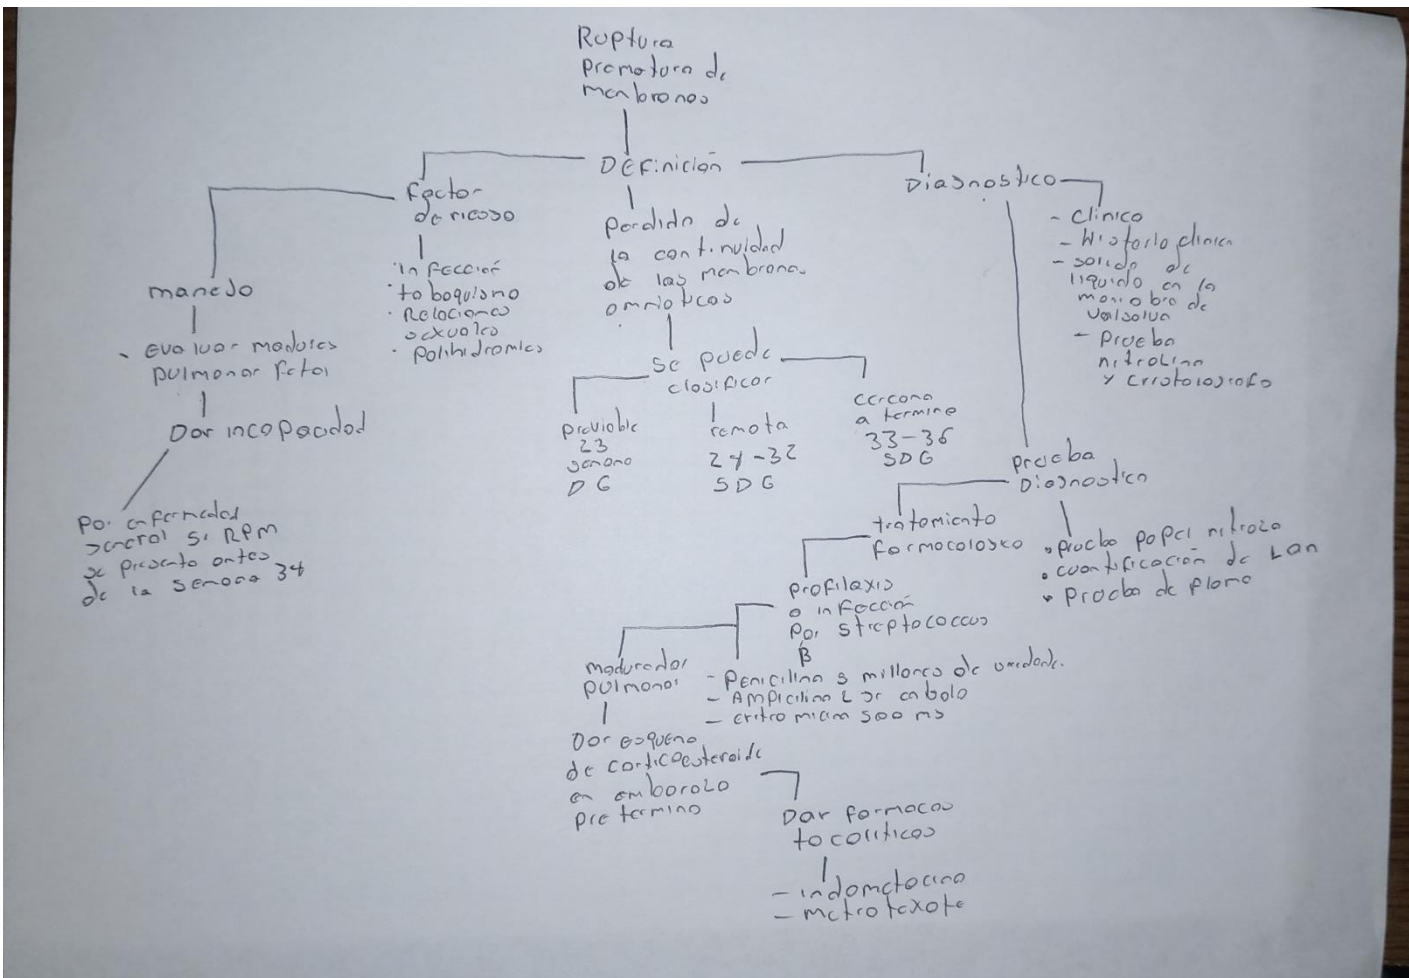 Ruptura
prematura de
menbranas
Definición
factor
de riesgo
infección
tabaquismo
Relaciones
sexuales
polihidramios
manejo
- evaluar madures
pulmonar fetal
Dar incapacidad
Por enfermedad
general si RPM
se presenta antes
de la semana 34
perdida de
la continuidad
de las membranas
amnioticas
se puede
clasificar
previable
23
semana
DG
remota
24-32
SDG
cercana
a termino
33-36
SDG
Diagnostico
- Clínico
- Historia clinica
- salida de
liquido en la
maniobra de
valsalva
- Prueba
nitrazina
y cristalografo
prueba
Diagnostica
• prueba papel nitraza
• cuantificación de Lan
• prueba de flama
tratamiento
farmacologico
profilaxis
o infección
por streptococcus
β
- Penicilina 5 millones de unidade.
- Ampicilina 2 gr en bolo
- eritromicin 500 mg
madurador
pulmonar
Dar esquema
de corticoesteroide
en emborazo
pretermino
Dar farmacos
tocoliticos
- indometacina
- metrotexate